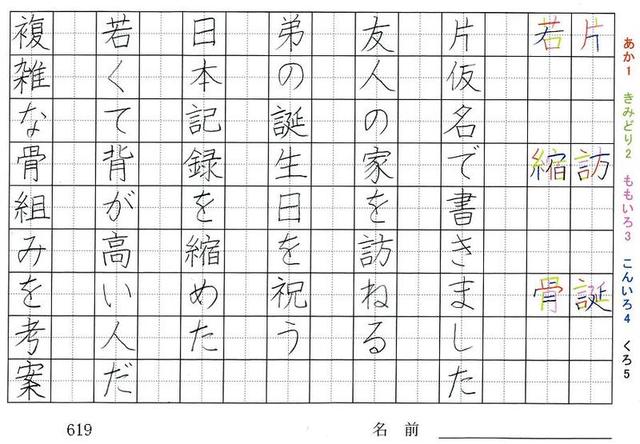 あか1 きみどり2 ももいろ3 こんいろ4 くろ5
片訪誕
若縮骨
片仮名で書きました
友人の家を訪ねる
弟の誕生日を祝う
日本記録を縮めた
若くて背が高い人だ
複雑な骨組みを考案
名前
619